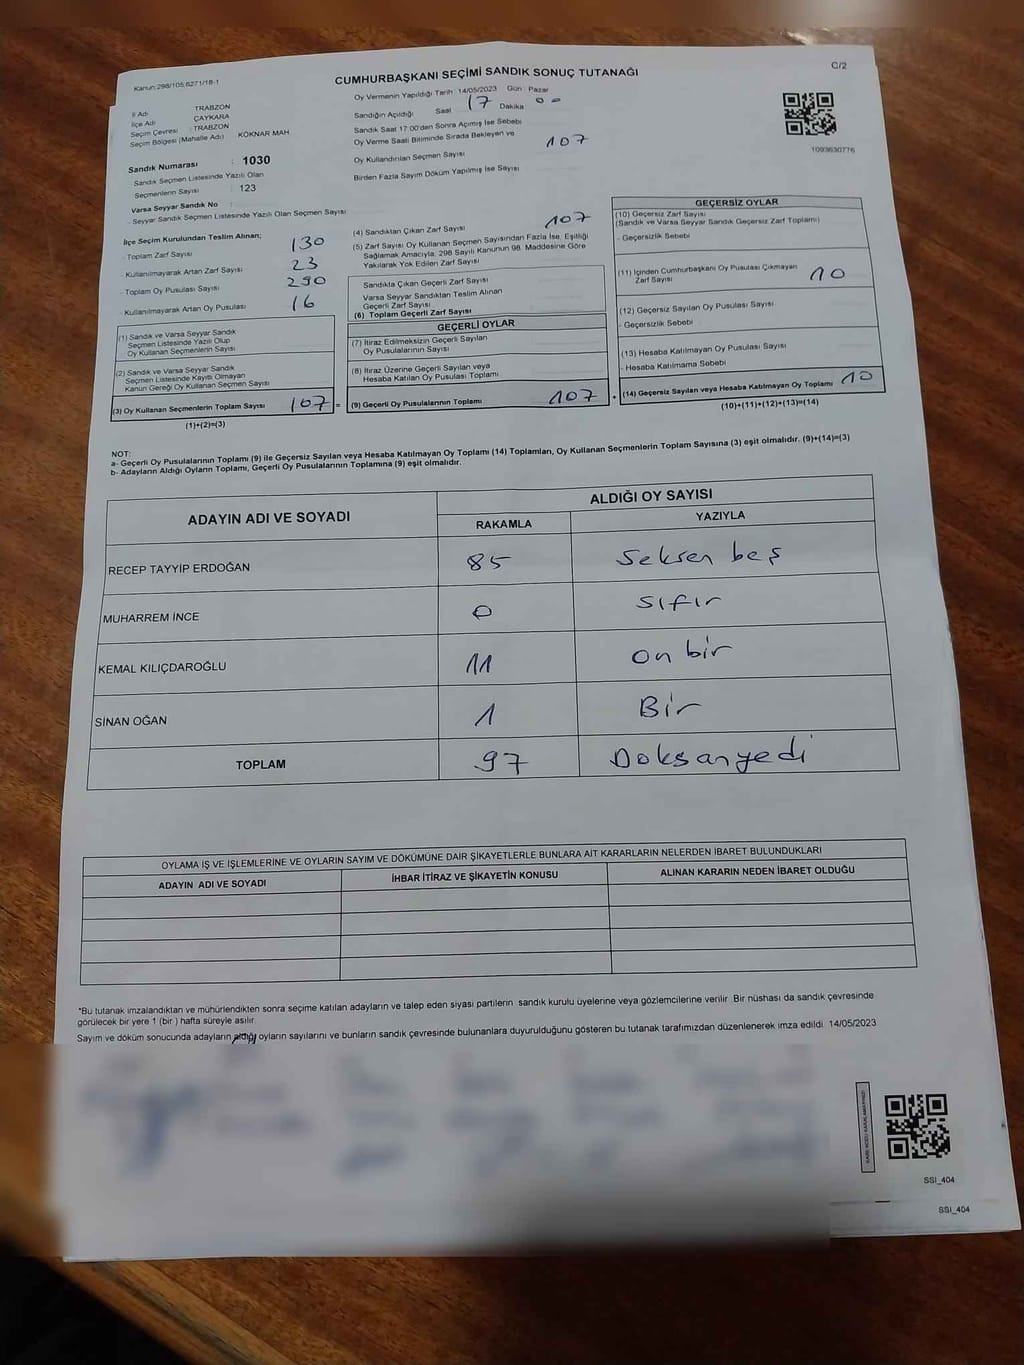 Kanun:298/105;6271/18-1
CUMHURBAŞKANI SEÇİMİ SANDIK SONUÇ TUTANAĞI
C/2
İl Adı : TRABZON
İlçe Adı : ÇAYKARA
Seçim Çevresi : TRABZON
Seçim Bölgesi (Mahalle Adı) : KÖKNAR MAH.
Sandık Numarası : 1030
Sandık Seçmen Listesinde Yazılı Olan
Seçmenlerin Sayısı : 123
Varsa Seyyar Sandık No :
- Seyyar Sandık Seçmen Listesinde Yazılı Olan Seçmen Sayısı
Oy Vermenin Yapıldığı Tarih 14/05/2023 Gün Pazar
Sandığın Açıldığı Saat 17 Dakika 00
Sandık Saat 17:00'den Sonra Açılmış İse Sebebi
Oy Verme Saati Bitiminde Sırada Bekleyen ve
Oy Kullandırılan Seçmen Sayısı 107
Birden Fazla Sayım Döküm Yapılmış İse Sayısı
1093630776
İlçe Seçim Kurulundan Teslim Alınan;
- Toplam Zarf Sayısı 130
- Kullanılmayarak Artan Zarf Sayısı 23
- Toplam Oy Pusulası Sayısı 290
- Kullanılmayarak Artan Oy Pusulası 16
(1) Sandık ve Varsa Seyyar Sandık
Seçmen Listesinde Yazılı Olup
Oy Kullanan Seçmenlerin Sayısı
(2) Sandık ve Varsa Seyyar Sandık
Seçmen Listesinde Kayıtlı Olmayan
Kanun Gereği Oy Kullanan Seçmen Sayısı
(3) Oy Kullanan Seçmenlerin Toplam Sayısı 107 =
(1)+(2)=(3)
(4) Sandıktan Çıkan Zarf Sayısı 107
(5) Zarf Sayısı Oy Kullanan Seçmen Sayısından Fazla İse, Eşitliği
Sağlamak Amacıyla; 298 Sayılı Kanunun 98. Maddesine Göre
Yakılarak Yok Edilen Zarf Sayısı
Sandıkta Çıkan Geçerli Zarf Sayısı
Varsa Seyyar Sandıktan Teslim Alınan
Geçerli Zarf Sayısı
(6) Toplam Geçerli Zarf Sayısı
GEÇERLİ OYLAR
(7) İtiraz Edilmeksizin Geçerli Sayılan
Oy Pusulalarının Sayısı
(8) İtiraz Üzerine Geçerli Sayılan veya
Hesaba Katılan Oy Pusulası Toplamı
(9) Geçerli Oy Pusulalarının Toplamı 107 +
GEÇERSİZ OYLAR
(10) Geçersiz Zarf Sayısı
(Sandık ve Varsa Seyyar Sandık Geçersiz Zarf Toplamı)
- Geçersizlik Sebebi
(11) İçinden Cumhurbaşkanı Oy Pusulası Çıkmayan
Zarf Sayısı 10
(12) Geçersiz Sayılan Oy Pusulası Sayısı
- Geçersizlik Sebebi
(13) Hesaba Katılmayan Oy Pusulası Sayısı
- Hesaba Katılmama Sebebi
(14) Geçersiz Sayılan veya Hesaba Katılmayan Oy Toplamı 10
(10)+(11)+(12)+(13)=(14)
NOT:
a- Geçerli Oy Pusulalarının Toplamı (9) ile Geçersiz Sayılan veya Hesaba Katılmayan Oy Toplamı (14) Toplamları, Oy Kullanan Seçmenlerin Toplam Sayısına (3) eşit olmalıdır. (9)+(14)=(3)
b- Adayların Aldığı Oyların Toplamı, Geçerli Oy Pusulalarının Toplamına (9) eşit olmalıdır.
ADAYIN ADI VE SOYADI
ALDIĞI OY SAYISI
RAKAMLA YAZIYLA
RECEP TAYYİP ERDOĞAN 85 Seksen beş
MUHARREM İNCE 0 Sıfır
KEMAL KILIÇDAROĞLU 11 On bir
SİNAN OĞAN 1 Bir
TOPLAM 97 Doksanyedi
OYLAMA İŞ VE İŞLEMLERİNE VE OYLARIN SAYIM VE DÖKÜMÜNE DAİR ŞİKAYETLERLE BUNLARA AİT KARARLARIN NELERDEN İBARET BULUNDUKLARI
ADAYIN ADI VE SOYADI İHBAR İTİRAZ VE ŞİKAYETİN KONUSU ALINAN KARARIN NEDEN İBARET OLDUĞU
*Bu tutanak imzalandıktan ve mühürlendikten sonra seçime katılan adayların ve talep eden siyasi partilerin sandık kurulu üyelerine veya gözlemcilerine verilir. Bir nüshası da sandık çevresinde
görülecek bir yere 1 (bir ) hafta süreyle asılır.
Sayım ve döküm sonucunda adayların aldığı oyların sayılarını ve bunların sandık çevresinde bulunanlara duyurulduğunu gösteren bu tutanak tarafımızdan düzenlenerek imza edildi. 14/05/2023
SSI_404
SSI_404